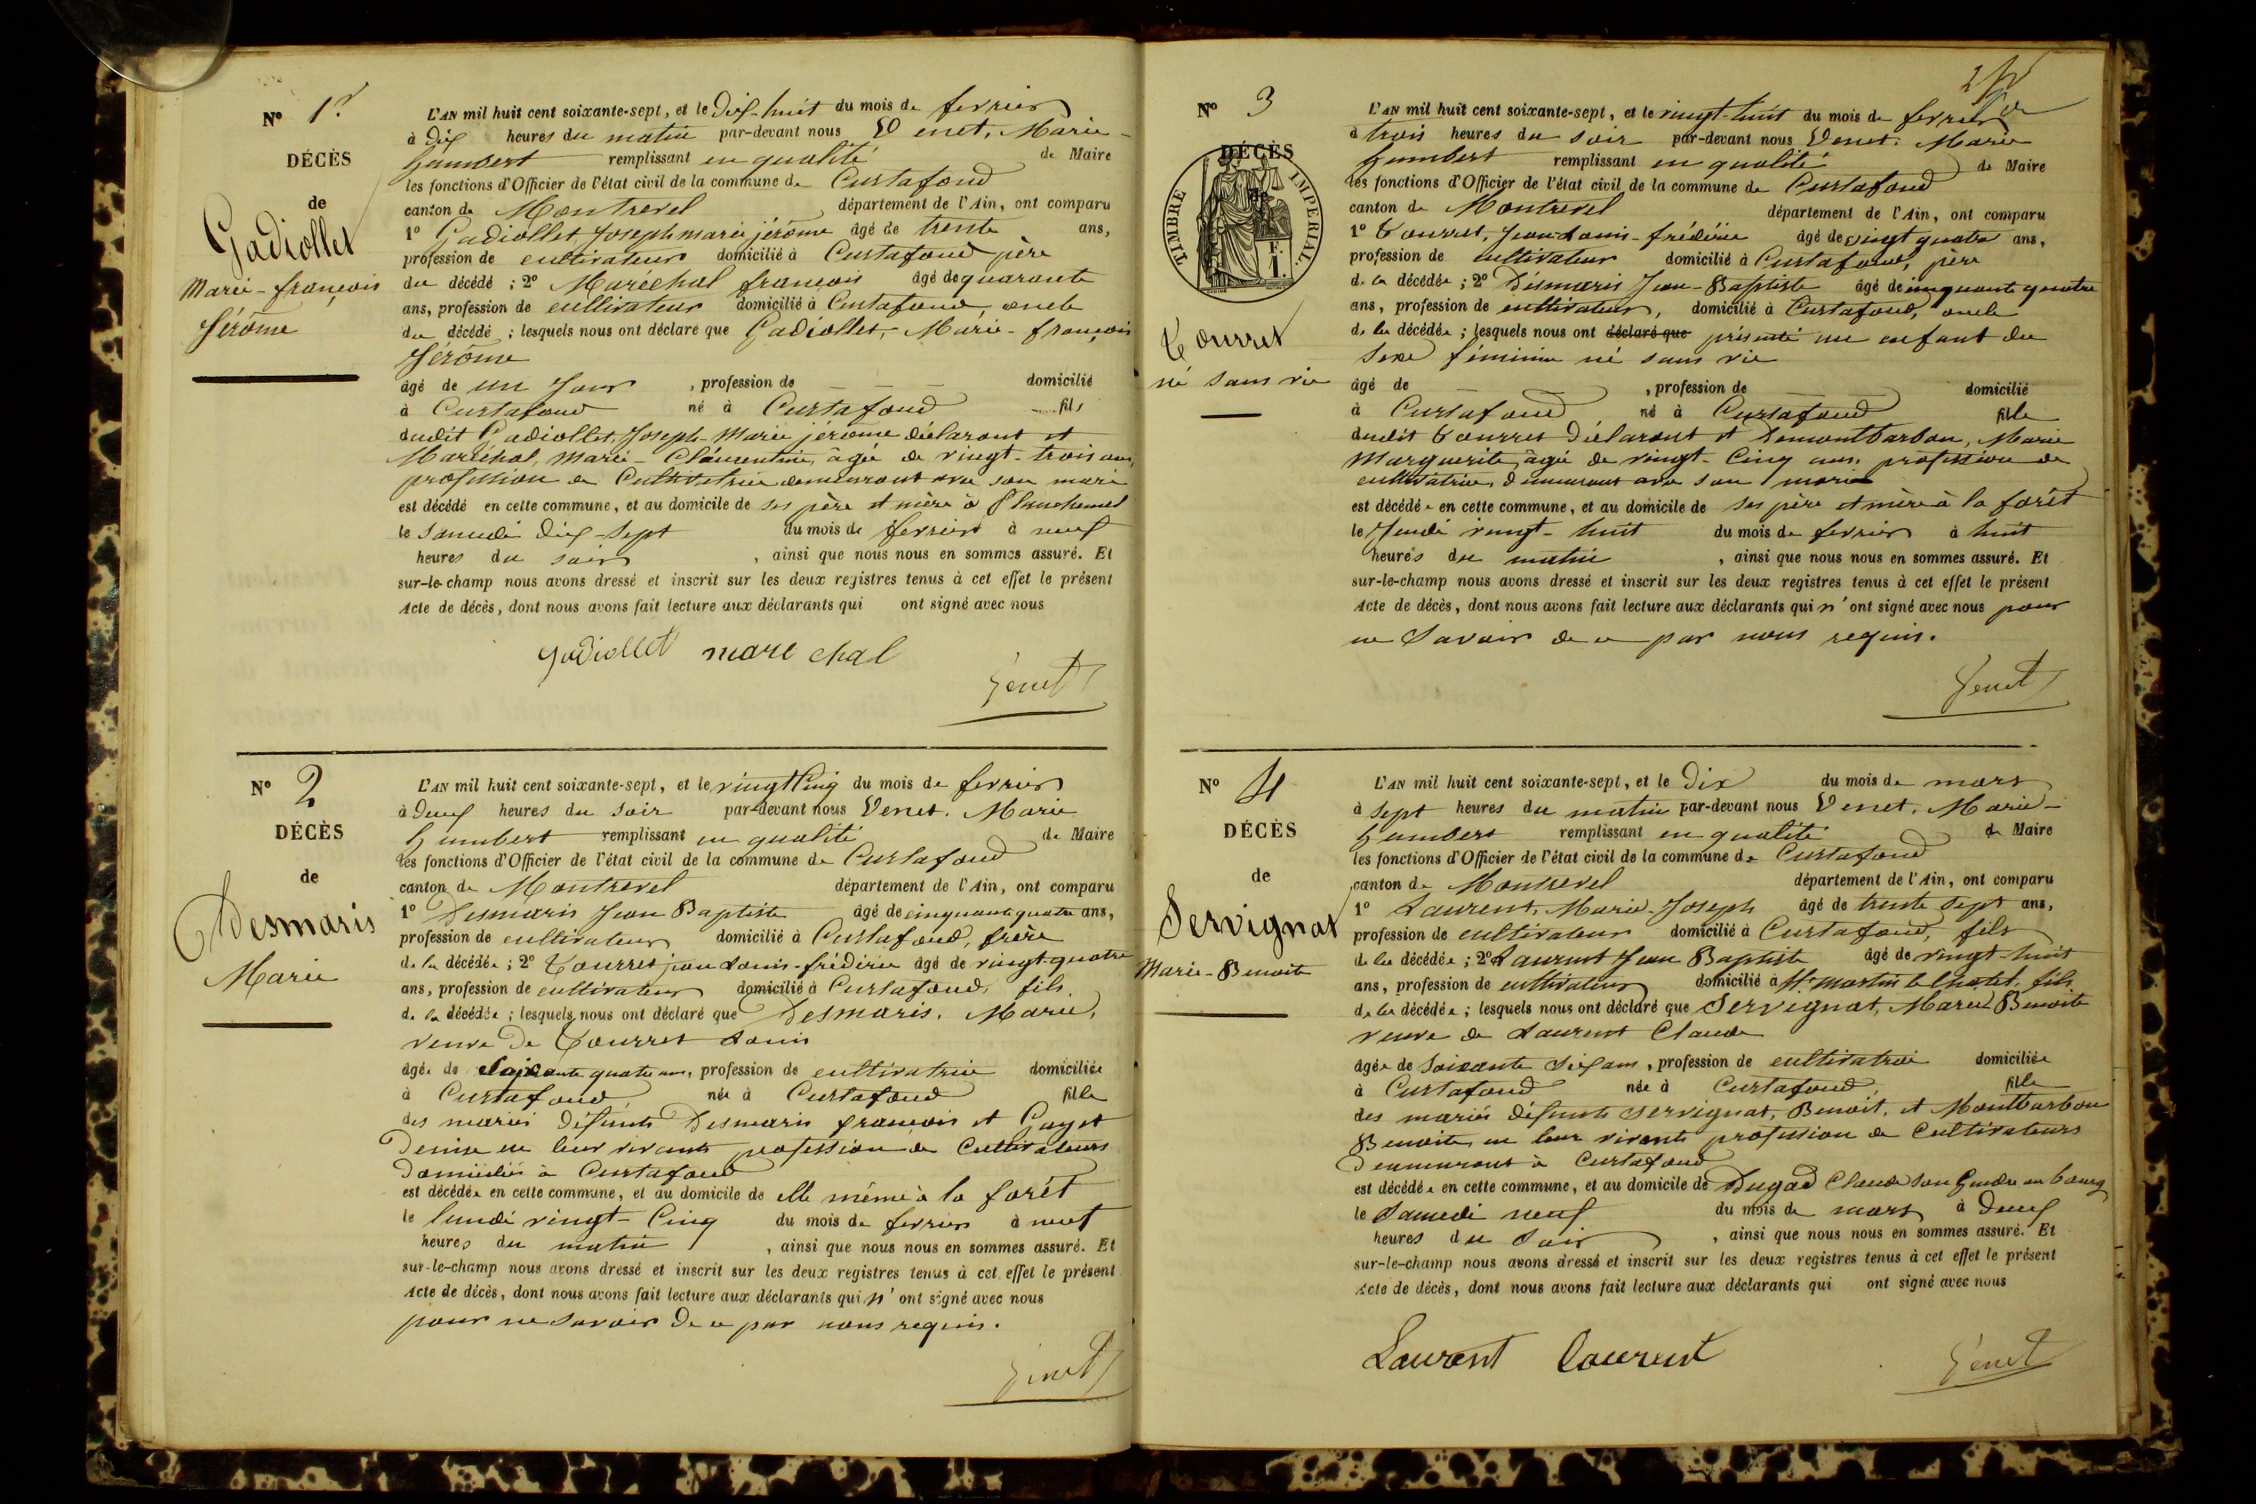 N° 1er
DÉCÈS
de
Gadiollet
Marie-françois
Jérôme
L'AN mil huit cent soixante-sept, et le dix-huit du mois de fevrier
à dix heures du matin par-devant nous Venet, Marie-
humbert remplissant en qualité de Maire
les fonctions d'Officier de l'état civil de la commune de Curtafond
canton de Montrevel département de l'Ain, ont comparu
1° Gadiollet Joseph marie jérôme âgé de trente ans,
profession de cultivateur domicilié à Curtafond père
du décédé ; 2° Maréchal françois âgé de quarante
ans, profession de cultivateur domicilié à Curtafond, oncle
du décédé ; lesquels nous ont déclaré que Gadiollet, Marie-françois
Jérôme
âgé de un Jour , profession de — — — domicilié
à Curtafond né à Curtafond fils
dudit Gadiollet, Joseph-Marie jérôme déclarant et
Maréchal, Marie-Clémentine, âgée de vingt-trois ans,
profession de Cultivatrice demeurant avec son mari
est décédé en cette commune, et au domicile de ses père et mère à
le samedi dix-sept du mois de fevrier à neuf
heures du soir , ainsi que nous nous en sommes assuré. Et
sur-le-champ nous avons dressé et inscrit sur les deux registres tenus à cet effet le présent
Acte de décès, dont nous avons fait lecture aux déclarants qui ont signé avec nous
gadiollet marechal
Venet
N° 2
DÉCÈS
de
Desmaris
Marie
L'AN mil huit cent soixante-sept, et le vingt Cinq du mois de fevrier
à deux heures du soir par-devant nous Venet, Marie
humbert remplissant en qualité de Maire
les fonctions d'Officier de l'état civil de la commune de Curtafond
canton de Montrevel département de l'Ain, ont comparu
1° Desmaris Jean Baptiste âgé de cinquante quatre ans,
profession de cultivateur domicilié à Curtafond, frère
de la décédée ; 2° Tourret jean Louis-frédéric âgé de vingt-quatre
ans, profession de cultivateur domicilié à Curtafond, fils
de la décédée ; lesquels nous ont déclaré que Desmaris, Marie,
veuve de Tourret Louis
âgée de soixante quatre ans, profession de cultivatrice domiciliée
à Curtafond née à Curtafond fille
des mariés défunts Desmaris françois et Guyot
Denise en leur vivant profession de Cultivateurs
domiciliés à Curtafond
est décédée en cette commune, et au domicile de elle même à la forêt
le lundi vingt-Cinq du mois de fevrier à neuf
heures du matin , ainsi que nous nous en sommes assuré. Et
sur-le-champ nous avons dressé et inscrit sur les deux registres tenus à cet effet le présent
Acte de décès, dont nous avons fait lecture aux déclarants qui n'ont signé avec nous
pour ne savoir de ce par nous requis.
Venet
N° 3
DÉCÈS
TIMBRE IMPERIAL
F.
1.
Tourret
né sans vie
L'AN mil huit cent soixante-sept, et le vingt-huit du mois de fevrier
à trois heures du soir par-devant nous Venet, Marie
humbert remplissant en qualité de Maire
les fonctions d'Officier de l'état civil de la commune de Curtafond
canton de Montrevel département de l'Ain, ont comparu
1° Tourret, Jean Louis-frédéric âgé de vingt quatre ans,
profession de cultivateur domicilié à Curtafond, père
de la décédée ; 2° Désmaris Jean-Baptiste âgé de cinquante quatre
ans, profession de cultivateur, domicilié à Curtafond, oncle
de la décédée ; lesquels nous ont déclaré que présenté un enfant du
sexe féminin né sans vie
âgé de — , profession de — domicilié
à Curtafond né à Curtafond fille
dudit Tourret déclarant et Demontbarbon, Marie
Marguerite, âgée de vingt-Cinq ans, profession de
cultivatrice, demeurant avec son mari
est décédée en cette commune, et au domicile de ses père et mère à la forêt
le Jeudi vingt-huit du mois de fevrier à huit
heures du matin , ainsi que nous nous en sommes assuré. Et
sur-le-champ nous avons dressé et inscrit sur les deux registres tenus à cet effet le présent
Acte de décès, dont nous avons fait lecture aux déclarants qui n'ont signé avec nous pour
ne savoir de ce par nous requis.
Venet
N° 4
DÉCÈS
de
Servignat
Marie-Benoite
L'AN mil huit cent soixante-sept, et le dix du mois de mars
à sept heures du matin par-devant nous Venet, Marie-
humbert remplissant en qualité de Maire
les fonctions d'Officier de l'état civil de la commune de Curtafond
canton de Montrevel département de l'Ain, ont comparu
1° Laurent, Marie-Joseph âgé de trente sept ans,
profession de cultivateur domicilié à Curtafond, fils
de la décédée ; 2° Laurent Jean Baptiste âgé de vingt-huit
ans, profession de cultivateur domicilié à St martin le Chatel, fils
de la décédée ; lesquels nous ont déclaré que Servignat, Marie Benoite
veuve de Laurent Claude
âgée de soixante dix ans, profession de cultivatrice domiciliée
à Curtafond née à Curtafond, fille
des mariés défunts Servignat, Benoit, et Montbarbon
Benoite, en leur vivant profession de Cultivateurs
demeurant à Curtafond
est décédée en cette commune, et au domicile de Dugad Claude son Gendre au bourg
le samedi neuf du mois de mars à deux
heures du soir , ainsi que nous nous en sommes assuré. Et
sur-le-champ nous avons dressé et inscrit sur les deux registres tenus à cet effet le présent
Acte de décès, dont nous avons fait lecture aux déclarants qui ont signé avec nous
Laurent laurent
Venet